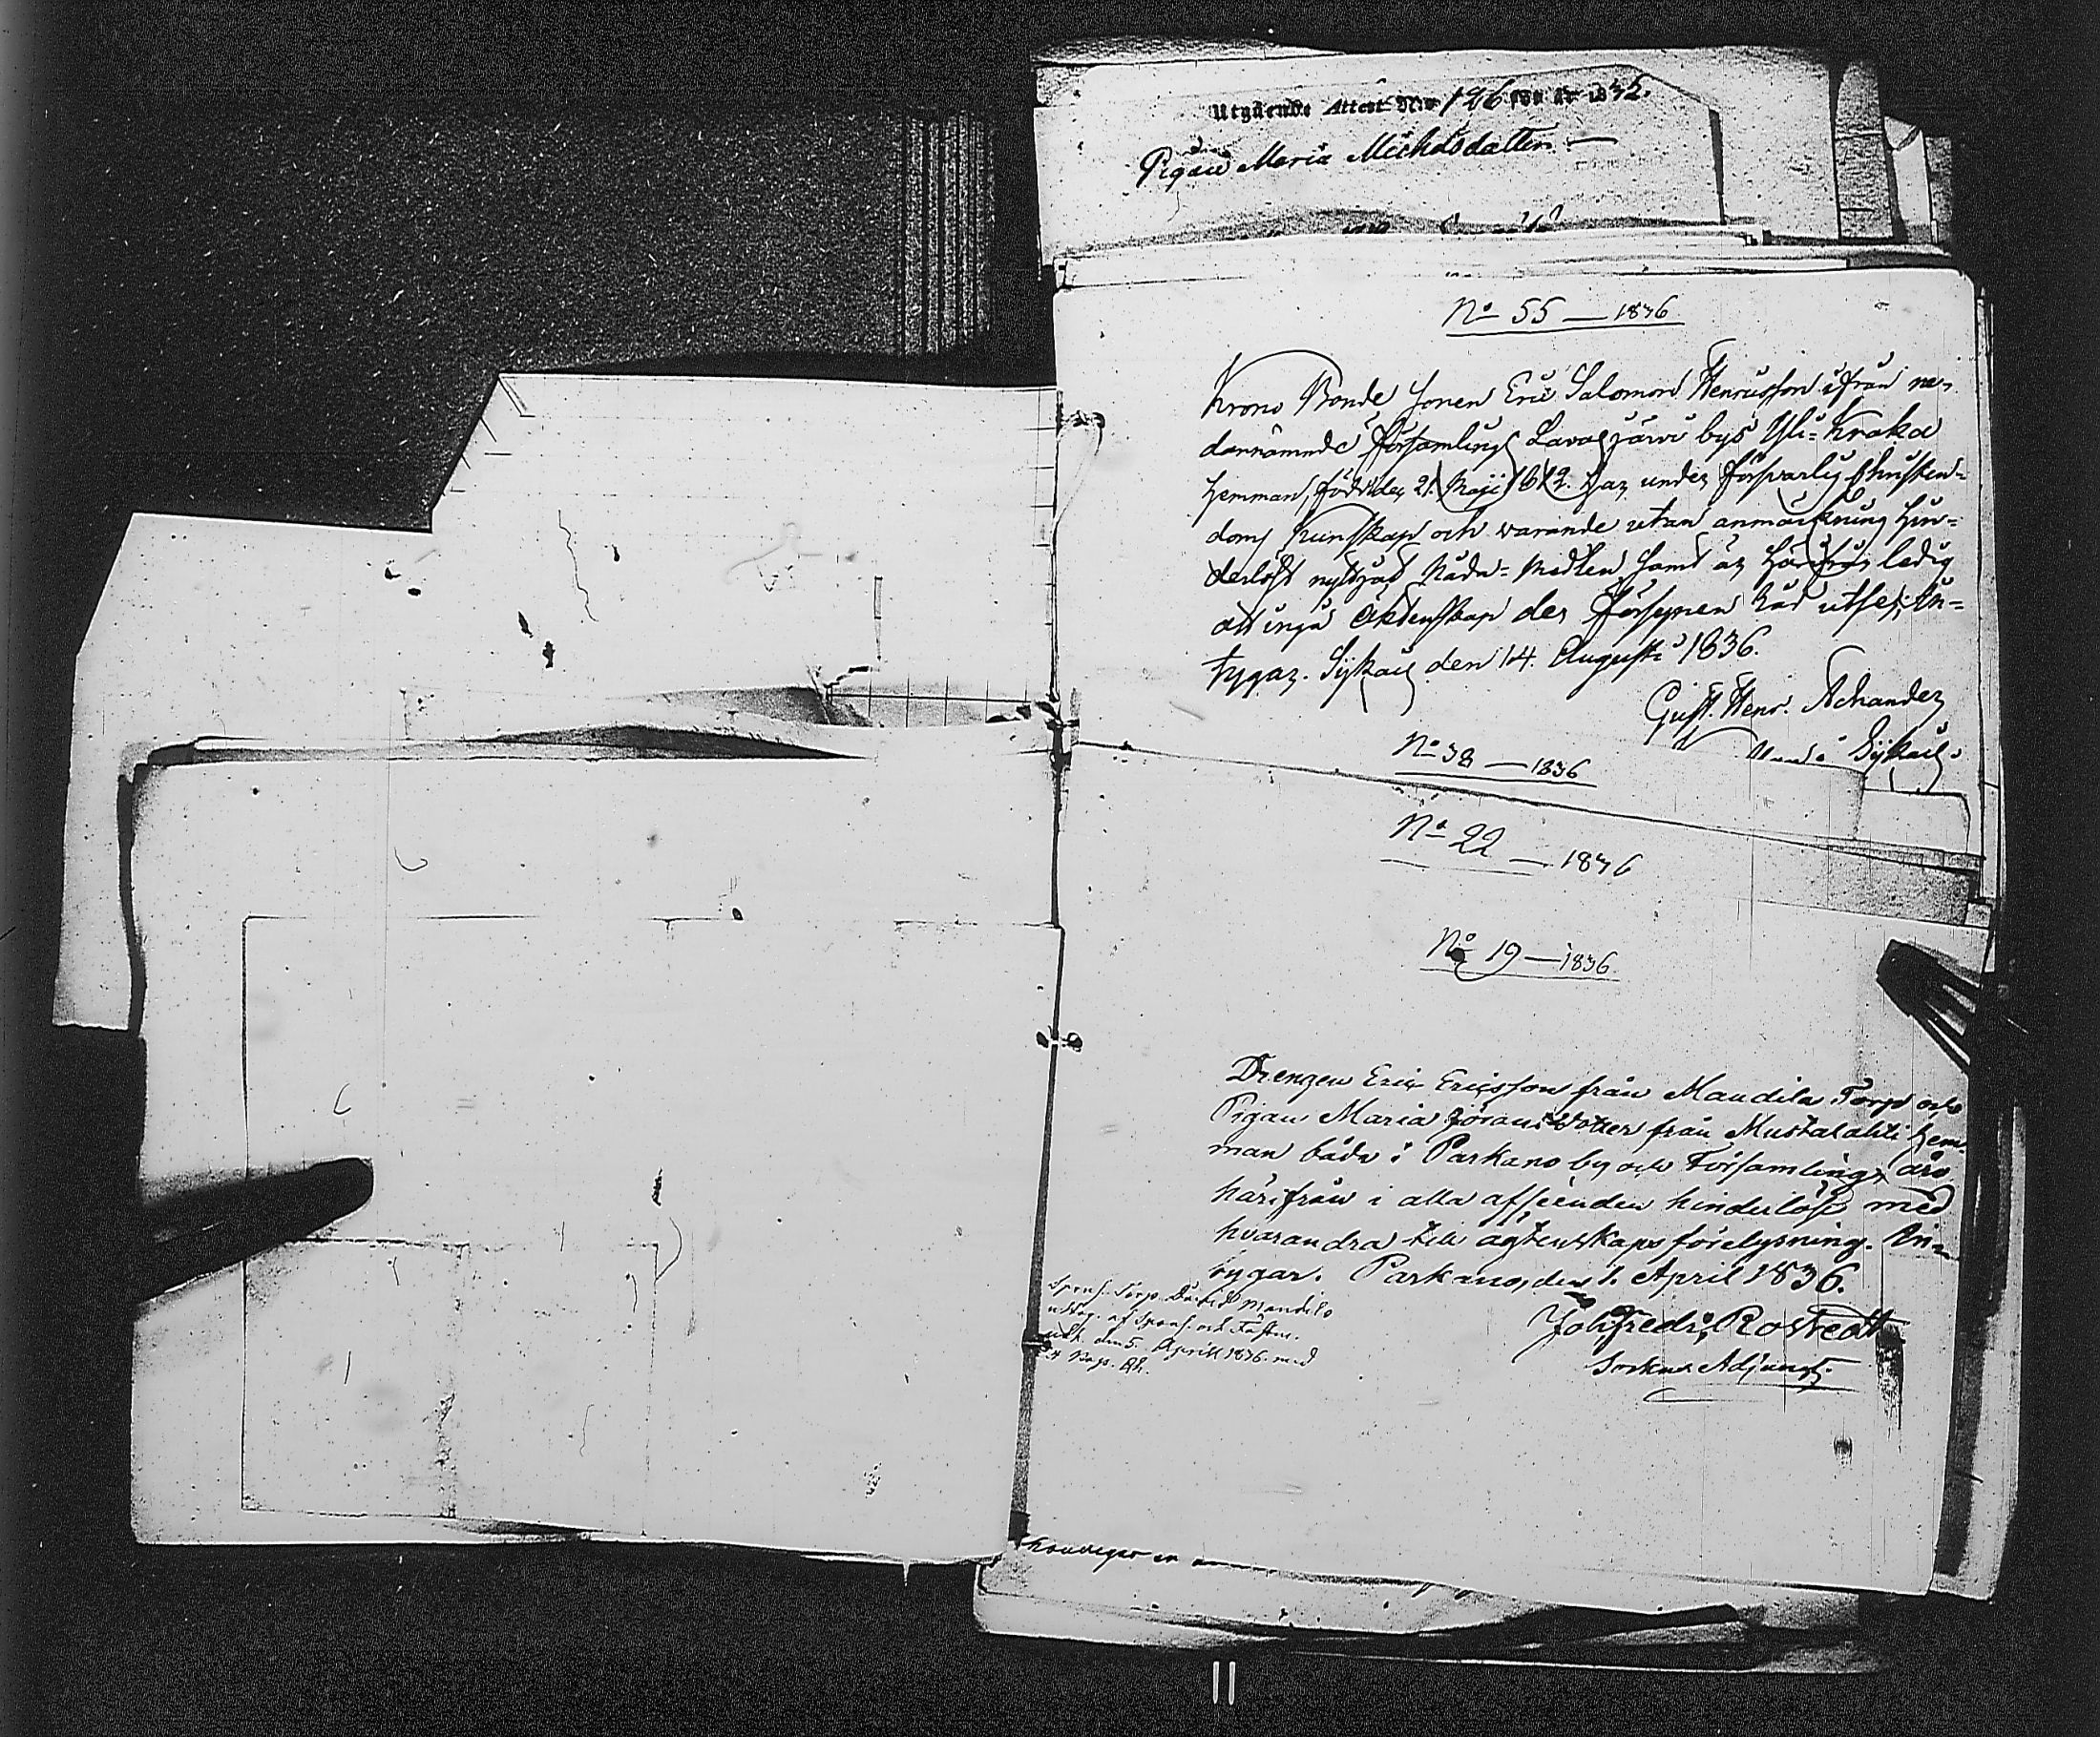 Utgående Attest Nro 126 för år 1832.
Pigan Maria Michelsdotter
No 55 — 1836
Krono Bonde Sonen Eric Salomon Henricsson ifrån ne-
dannämnde Församling Lavasjärvi bys Yli-Kraka
hemman, född den 21 Maji 1812. Har under försvarlig Christen-
doms kunskap och warande utan anmärkning hin-
derlöst nyttjat Nåde-Medlen samt är härifrån ledig
att ingå Äktenskap der Försynen täcks utse; in-
tygar. Sykais den 14. Augusti 1836.
Gust. Henr. Achander
i Sykais.
No 38 — 1836
No 22 — 1836
No 19 — 1836
Drengen Eric Ericsson från Mandila Torp och
Pigan Maria Jörans Dotter från Mustalahti hem-
man båda i Parkano by och Församling, äro
härifrån i alla afseenden hinderlöse med
hvarandra till ägtenskaps förelysning. In-
tygar. Parkano, den 1. April 1836.
Joh. Fredr. Rostedt
Sockne Adjunct.
Spons. Torp. David Mandila
af Spons. och Fästm.
den 5. Aprill 1836. med